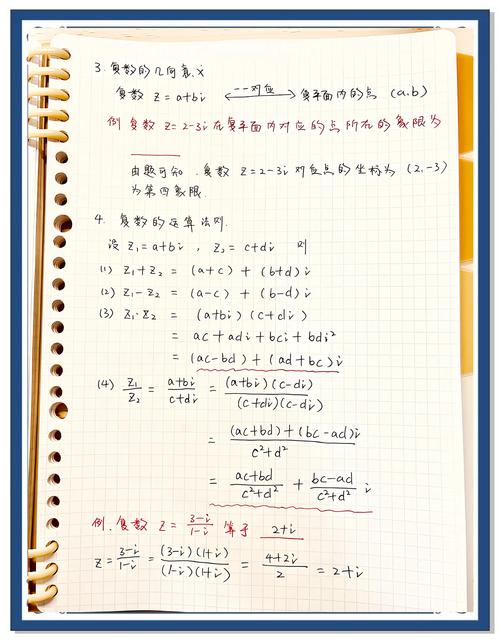 3. 复数的几何意义
复数 z=a+bi ←一一对应→ 复平面内的点 (a,b)
例 复数 z=2-3i 在复平面内对应的点所在的象限为
由题可知, 复数 z=2-3i 对应点的坐标为 (2,-3)
为第四象限.
4. 复数的运算法则.
设 z₁=a+bi , z₂=c+di 则
(1) z₁+z₂ = (a+c) + (b+d) i
(2) z₁-z₂ = (a-c) + (b-d) i
(3) z₁·z₂ = (a+bi) (c+di)
= ac+adi+bci+bdi²
= (ac-bd) + (ad+bc) i
(4) z₁/z₂ = (a+bi)/(c+di) = (a+bi)(c-di)/(c+di)(c-di)
= (ac+bd)+(bc-ad)i/(c²+d²)
= (ac+bd)/(c²+d²) + (bc-ad)/(c²+d²) i
例. 复数 z = (3-i)/(1-i) 等于 2+i
z = (3-i)/(1-i) = (3-i)(1+i)/(1-i)(1+i) = (4+2i)/2 = 2+i